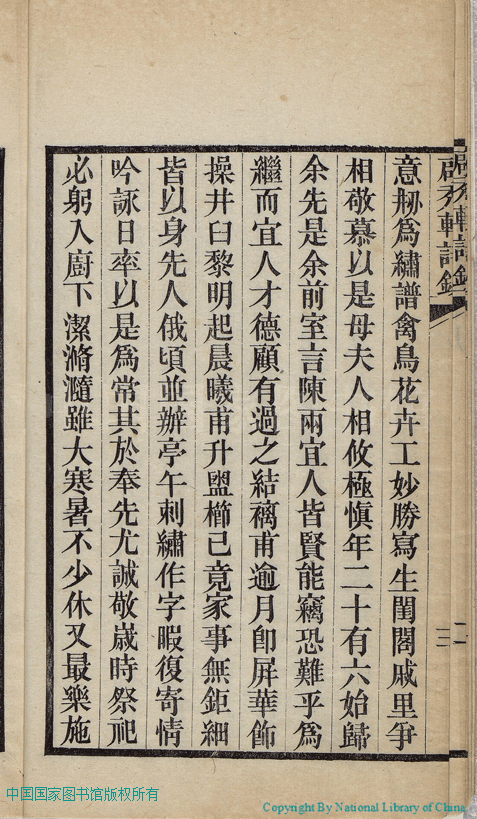 意剏為繡譜禽鳥花卉工妙勝寫生閨閣戚里爭
相敬慕以是母夫人相攸極愼年二十有六始歸
余先是余前室言陳兩宜人皆賢能竊恐難乎為
繼而宜人才德顧有過之結褵甫逾月卽屏華飾
操井臼黎明起晨曦甫升盥櫛已竟家事無鉅細
皆以身先人俄頃並辦亭午刺繡作字暇復寄情
吟詠日率以是為常其於奉先尤誠敬歲時祭祀
必躬入廚下潔滫瀡雖大寒暑不少休又最樂施
中国国家图书馆版权所有
Copyright By National Library of China.